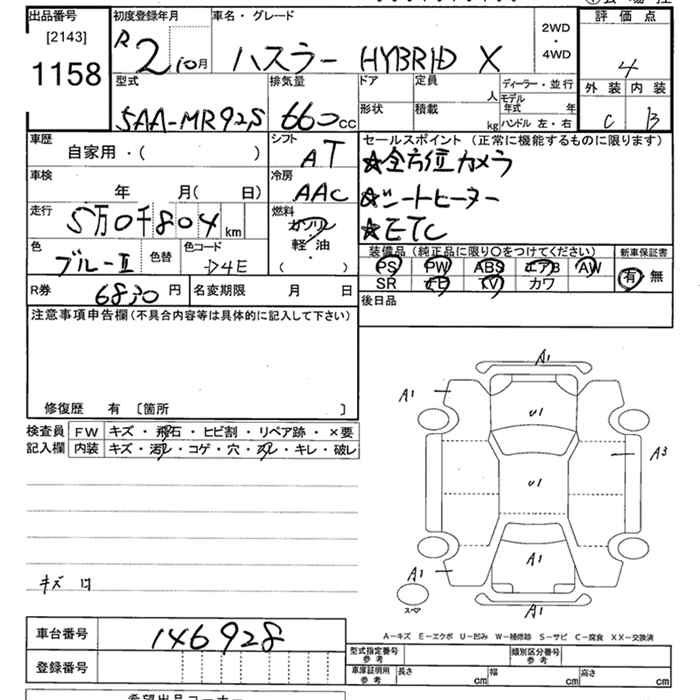 出品番号 初度登録年月 車名・グレード 2WD・4WD 評価点
[2143]
1158 R2 10月 ハスラー HYBRID X 4
型式 排気量 ドア 定員 人 ディーラー・並行 外装 内装
5AA-MR92S 660cc 形状 積載 kg モデル年式 年 C B
ハンドル 左・右
車歴 シフト セールスポイント (正常に機能するものに限ります)
自家用・( ) AT ☆全方位カメラ
車検 年 月( 日) 冷房 AAC ☆シートヒーター
走行 5万0千804km 燃料 ガソリン・軽・油・( ) ☆ETC
色 ブルーII 色替 色コード D4E
装備品 (純正品に限り〇をつけてください) 新車保証書
PS PW ABS エアB AW 有 無
SR ナビ TV カワ
R券 6830円 名変期限 月 日 後日品
注意事項申告欄(不具合内容等は具体的に記入して下さい)
修復歴 有 [箇所 ]
検査員 FW キズ・飛石・ヒビ割・リペア跡・×要
記入欄 内装 キズ・汚レ・コゲ・穴・スレ・キレ・破レ
A1
A1 A1
U1
A3
U1
A1
A1 A1
A1
スペア
キズ
A-キズ E-エクボ U-凹み W-補修跡 S-サビ C-腐食 XX-交換済
車台番号 146928
型式指定番号 参考 類別区分番号 参考
登録番号 車庫証明用 参考 長さ cm 幅 cm 高さ cm
希望出品コーナー